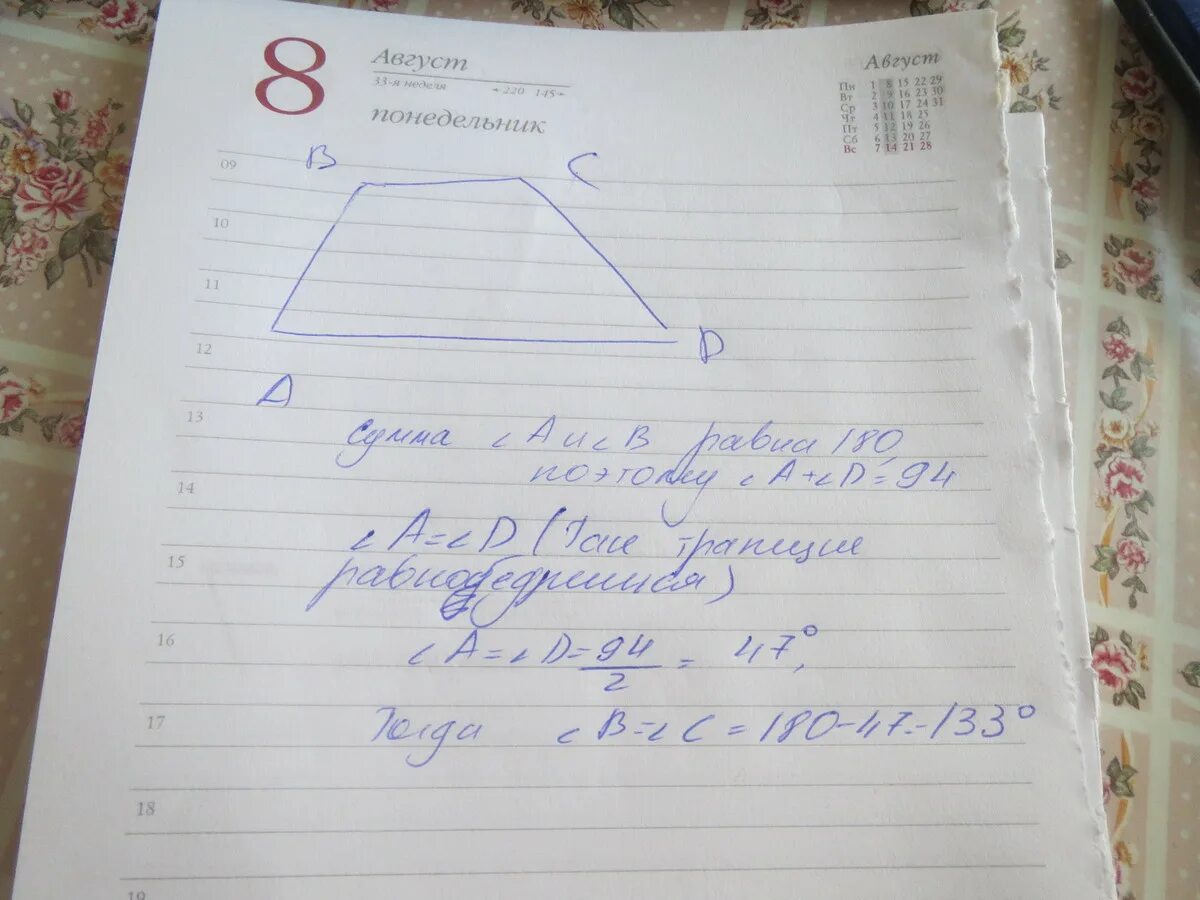 8
Август
33-я неделя
220 145
понедельник
Август
Пн 1 8 15 22 29
Вт 2 9 16 23 30
Ср 3 10 17 24 31
Чг 4 11 18 25
Пт 5 12 19 26
Сб 6 13 20 27
Вс 7 14 21 28
09
B C
10
11
12
D
A
13
Сумма ∠A и ∠B равна 180,
поэтому ∠A+∠D=94
14
∠A=∠D (
15
16
∠A=∠D=94/2=47°,
17
Тогда ∠B=∠C=180-47=133°
18
19